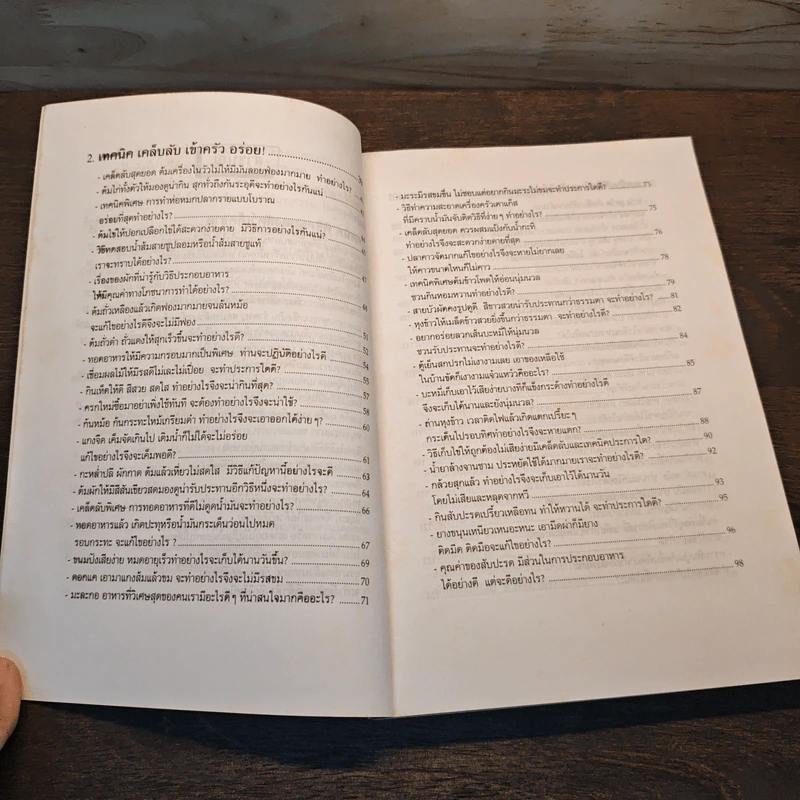 2. เทคนิค เคล็บลับ เข้าครัว อร่อย!
- เคล็ดลับสุดยอด ต้มเครื่องในวัวไม่ให้มีมันลอยฟองมากมาย ทำอย่างไร?
- ต้มไก่ทั้งตัวให้มองดูน่ากิน สุกทั่วถึงกันระอุดีจะทำอย่างไรกันแน่
- เทคนิคพิเศษ การทำห่อหมกปลากรายแบบโบราณ
อร่อยที่สุดทำอย่างไร?
- ต้มไข่ให้ปอกเปลือกไข่ได้สะดวกง่ายดาย มีวิธีการอย่างไรกันแน่?
- วิธีทดสอบน้ำส้มสายชูปลอมหรือน้ำส้มสายชูแท้
เราจะทราบได้อย่างไร?
- เรื่องของผักที่น่ารู้กับวิธีประกอบอาหาร
ให้มีคุณค่าทางโภชนาการทำได้อย่างไร?
- ต้มถั่วเหลืองแล้วเกิดฟองมากมายจนล้นหม้อ
จะแก้ไขอย่างไรดีจึงจะไม่มีฟอง
- ต้มถั่วดำ ถั่วแดงให้สุกเร็วขึ้นจะทำอย่างไรดี? 51
- ทอดอาหารให้มีความกรอบมากเป็นพิเศษ ท่านจะปฏิบัติอย่างไรดี 52
- เชื่อมผลไม้ให้มีรสดีไม่เละไม่เปื่อย จะทำประการใดดี? 54
- กินเห็ดให้ดี สีสวย สดใส ทำอย่างไรจึงจะน่ากินที่สุด? 55
- ครกใหม่ซื้อมาอย่าเพิ่งใช้ทันที จะต้องทำอย่างไรจึงจะน่าใช้? 57
- ก้นหม้อ ก้นกระทะไหม้เกรียมดำ ทำอย่างไรจึงจะเอาออกได้ง่ายๆ? 58
- แกงจืด เค็มจัดเกินไป เติมน้ำก็ไม่ได้จะไม่อร่อย 60
แก้ไขอย่างไรจึงจะเค็มพอดี? 61
- กะหล่ำปลี ผักกาด ต้มแล้วเหี่ยวไม่สดใส มีวิธีแก้ปัญหานี้อย่างไรจะดี 63
- ต้มผักให้มีสีสันเขียวสดมองดูน่ารับประทานอีกวิธีหนึ่งจะทำอย่างไร? 64
- เคล็ดลับพิเศษ การทอดอาหารที่ดีไม่ดูดน้ำมันจะทำอย่างไร? 66
- ทอดอาหารแล้ว เกิดปะทุหรือน้ำมันกระเด็นว่อนไปหมด
รอบกระทะ จะแก้ไขอย่างไร ? 67
- ขนมปังเสียง่าย หมดอายุเร็วทำอย่างไรจะเก็บได้นานวันขึ้น? 69
- ดอกแค เอามาแกงส้มแล้วขม จะทำอย่างไรจึงจะไม่มีรสขม 70
- มะละกอ อาหารที่วิเศษสุดของคนเรามีอะไรดีๆ ที่น่าสนใจมากคืออะไร? 71
- มะระมีรสขมขื่น ไม่ชอบแต่อยากกินมะระไม่ขมจะทำประการใดดี? 73
- วิธีทำความสะอาดเครื่องครัวเตาแก๊ส
ที่มีคราบน้ำมันจับติดวิธีที่ง่ายๆ ทำอย่างไร? 75
- เคล็ดลับสุดยอด ควรผสมแป้งกับน้ำกะทิ
ทำอย่างไรจึงจะสะดวกง่ายดายที่สุด 76
- ปลาคาวจัดมากแก้ไขอย่างไรจึงจะหายไม่ยากเลย
ให้คาวขนาดไหนก็ไม่คาว 78
- เทคนิคพิเศษต้มข้าวโพดให้อ่อนนุ่มนวล
ชวนกินหอมหวานทำอย่างไรดี? 79
- สายบัวผัดคงรูปดูดี สีขาวสวยน่ารับประทานกว่าธรรมดา จะทำอย่างไร? 81
- หุงข้าวให้เมล็ดข้าวสวยยิ่งขึ้นกว่าธรรมดา จะทำอย่างไรดี? 82
- อยากอร่อยลวกเส้นบะหมี่ให้นุ่มนวล
ชวนรับประทานจะทำอย่างไรดี? 84
- ตู้เย็นสกปรกไม่เงางามเลย เอาของเหลือใช้
ในบ้านขัดก็เงางามแจ๋วแหว๋วคืออะไร? 85
- บะหมี่เก็บเอาไว้เสียง่ายบางทีก็แข็งกระด้างทำอย่างไรดี
จึงจะเก็บได้นานและยังนุ่มนวล? 87
- ถ่านหุงข้าว เวลาติดไฟแล้วเกิดแตกเปรี๊ยะๆ
กระเด็นไปรอบทิศทำอย่างไรจึงจะหายแตก? 88
- วิธีเก็บไข่ให้ถูกต้องไม่เสียง่ายมีเคล็ดลับและเทคนิคประการใด? 90
- น้ำยาล้างจานชาม ประหยัดใช้ได้มากมายเราจะทำอย่างไรดี? 92
- กล้วยสุกแล้ว ทำอย่างไรจึงจะเก็บเอาไว้ได้นานวัน
โดยไม่เสียและหลุดจากหวี 93
- กินสับปะรดเปรี้ยวเหลือทน ทำให้หวานได้ จะทำประการใดดี? 95
- ยางขนุนเหนียวเหนอะหนะ เอามีดผ่าก็มียาง
ติดมีด ติดมือจะแก้ไขอย่างไร? 96
- คุณค่าของสับปะรด มีส่วนในการประกอบอาหาร
ได้อย่างดี แต่จะดีอย่างไร? 98